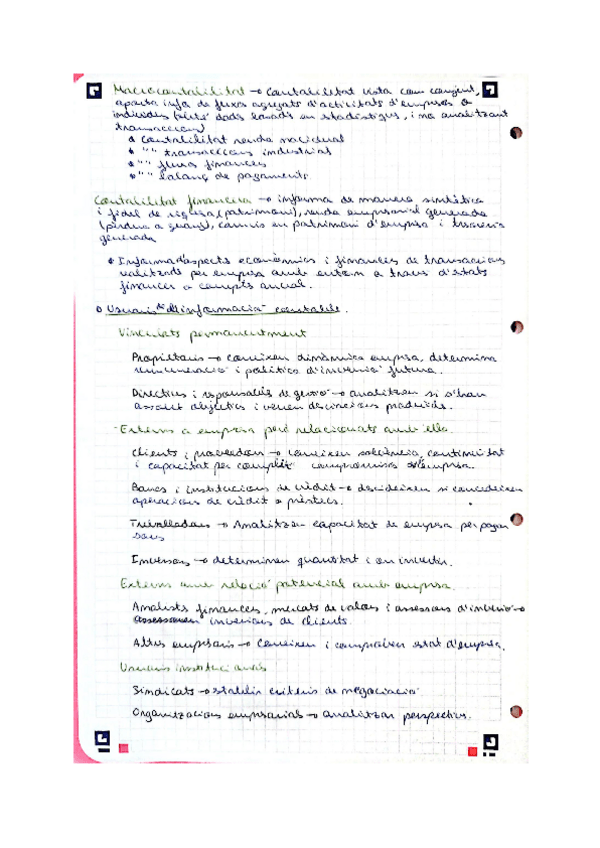 Macrocontabilitat → Contabilitat vista com conjunt,
aporta info de fluxos agregats d'activitats d'empreses o
individus dades basads en estadistiques, i no analitzant
transaccions
* Contabilitat renda nacional
* "" transaccions industrial
* "" fluxos finances
* "" balanç de pagaments
Contabilitat financera → informa de manera sintètica
i fidel de riquesa (patrimoni), renda empresarial generada
(pèrdua o guany), canvis en patrimoni d'empresa i tresoreria
generada
* Informa d'aspects econòmics i finances de transaccions
realitzads per empresa amb entorn a traves d'estats
finances o comptes anual.
Usuaris de informació contable.
Vinculats permanentment
Propietaris → coneixen dinàmica empresa, determina
remuneració i política d'inversió futura.
Directius i responsables de gestió → analitzen si s'han
assolit objectius i venen descicions produïds.
- Externs a empresa però relacionats amb ella.
Clients i proveedors → coneixen solvència, continuitat
i capacitat per complir compromisos d'empresa.
Bancs i institucions de crèdit → decideixen si concedeixen
operacions de crèdit o préstecs.
Treballadors → Analitzen capacitat de empresa per pagar
sous
Inversors → determinen quantitat i on invertir.
Externs amb relació potencial amb empresa.
Analists finances, mercats de valors i assessors d'inversió →
assessoren inversions de clients.
Altres empresaris → Coneixen i comparen estat d'empresa.
Usuaris institucionals
Sindicats → establir criteris de negociació.
Organitzacions empresarials → analitzar perspectives.